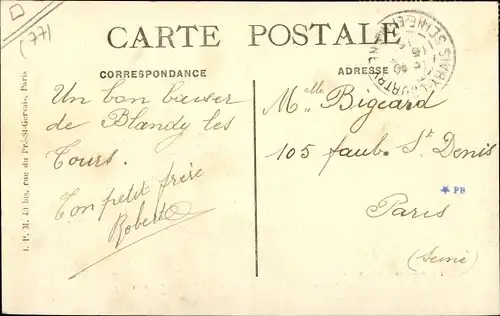 (77)
CARTE POSTALE
CORRESPONDANCE
ADRESSE
Un bon baiser
de Blandy les
Tours.
Ton petit frère
Robert
Melle Bigeard
105 faub. St Denis
Paris
(Seine)
PB
I. P. M. 43 bis, rue du Pré-St-Gervais, Paris.